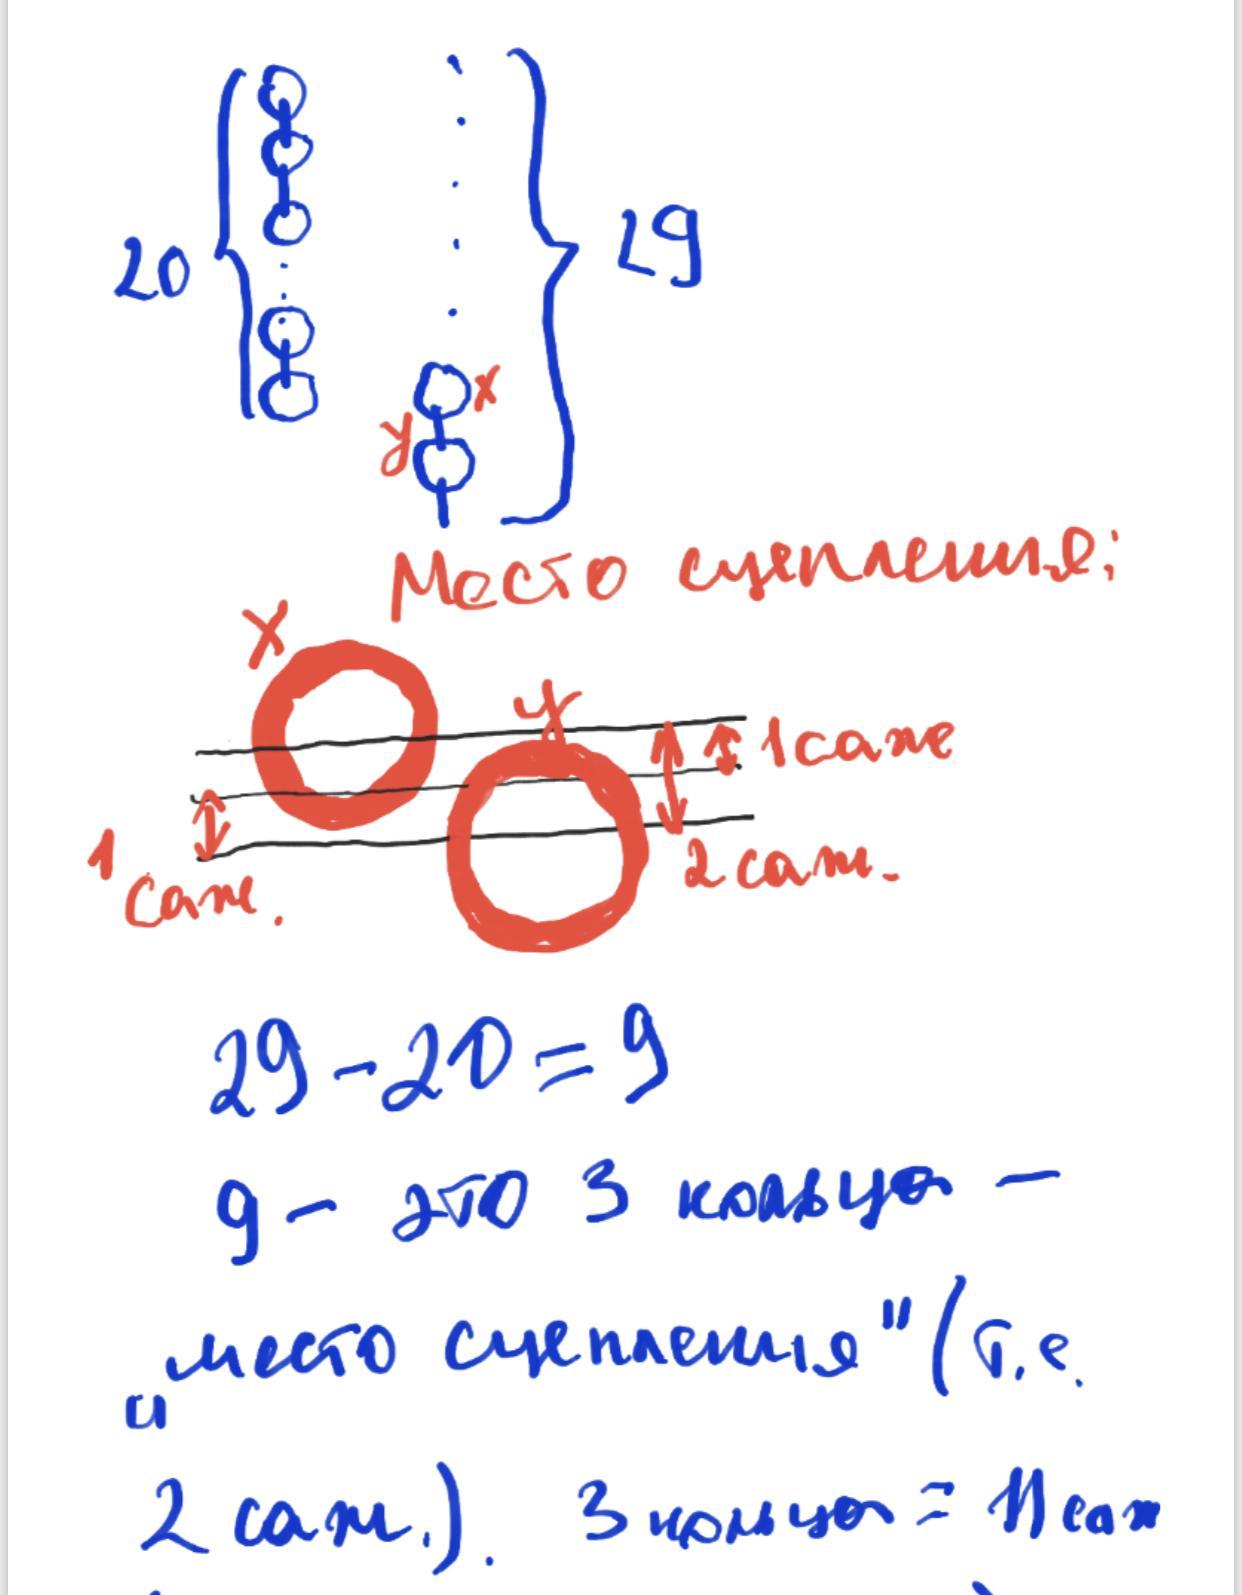 20
29
x
y
Место сцепления:
x
y
1 саже
2 саж.
1 саж.
29 - 20 = 9
9 - это 3 кольца -
"место сцепления" (т.е.
2 саж.). 3 кольца = 11 саж